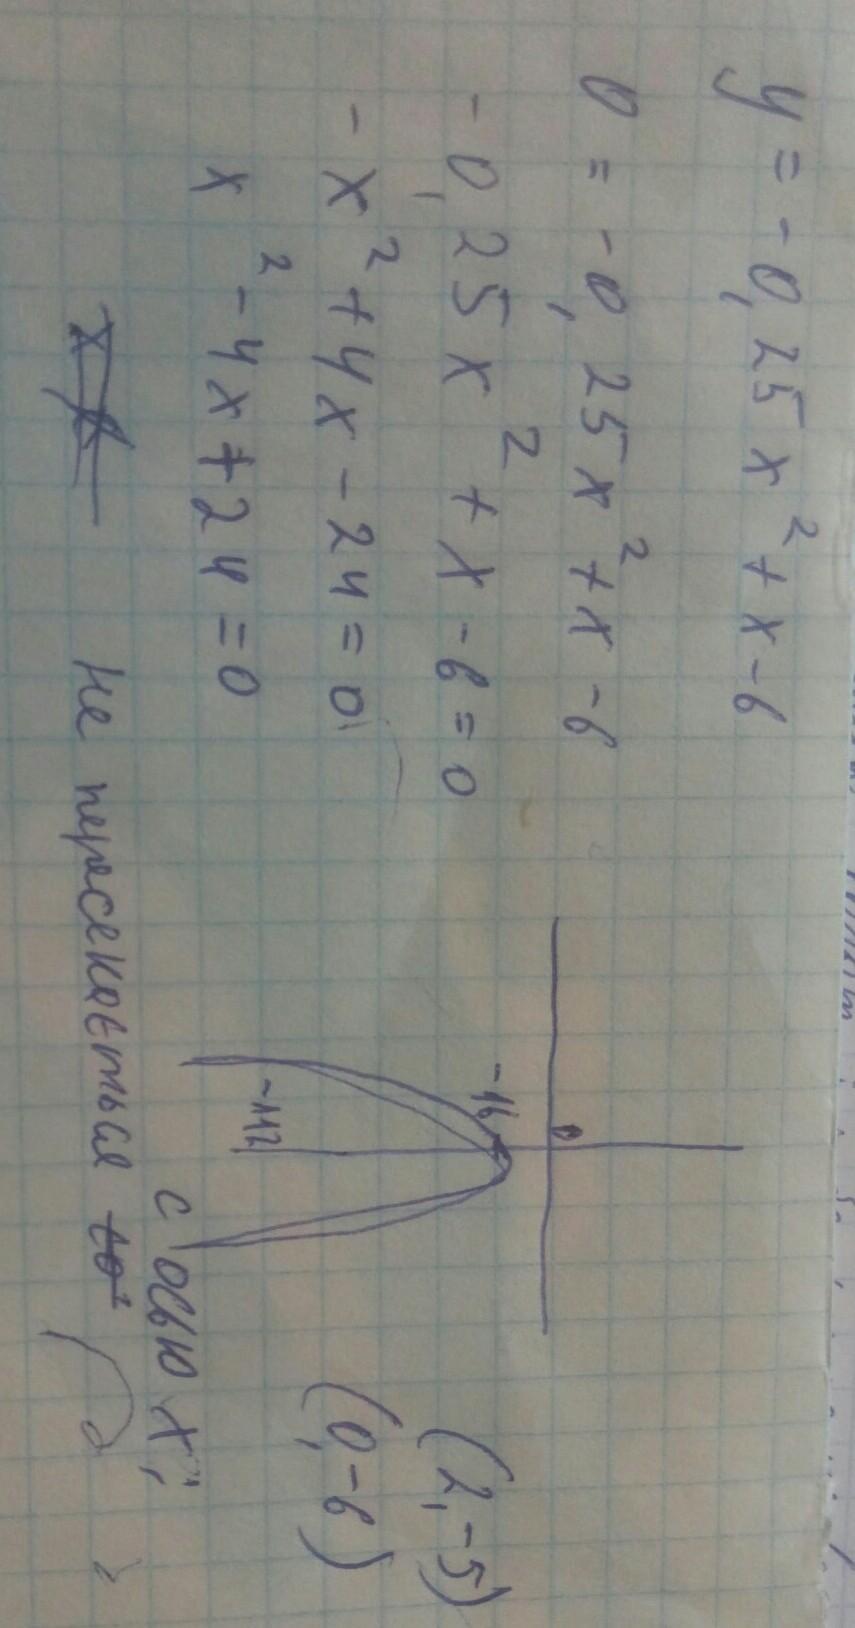 y = -0,25x² + x - 6
0 = -0,25x² + x - 6
-0,25x² + x - 6 = 0
-x² + 4x - 24 = 0
x² - 4x + 24 = 0
не пересекаеться
с осью x;
-16
-112
(2,-5)
(0,-6)